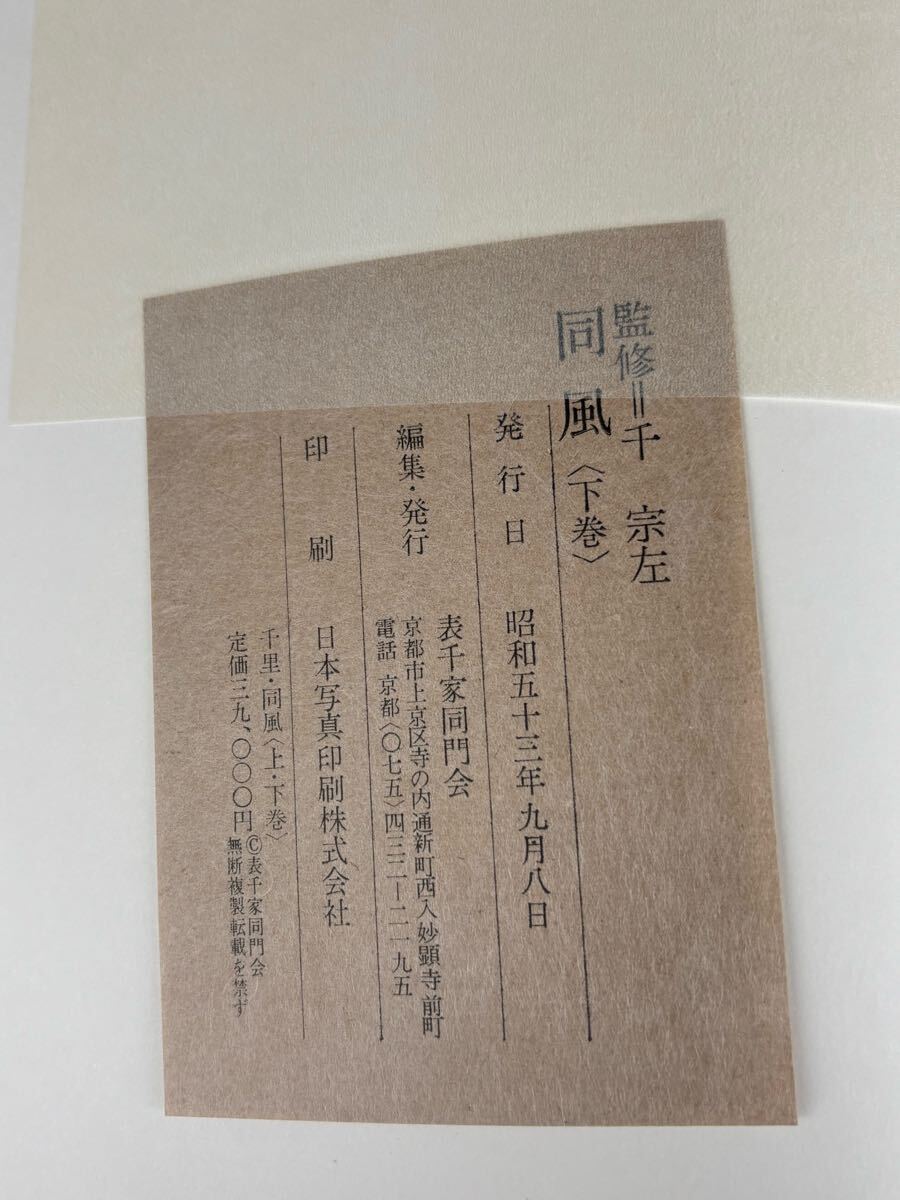 監修=千 宗左
同風〈下巻〉
発行日 昭和五十三年九月八日
編集・発行 表千家同門会
京都市上京区寺の内通新町西入妙顕寺前町
電話 京都〈〇七五〉四三二―二一九五
印刷 日本写真印刷株式会社
千里・同風〈上・下巻〉
定価三九、〇〇〇円
©表千家同門会
無断複製転載を禁ず